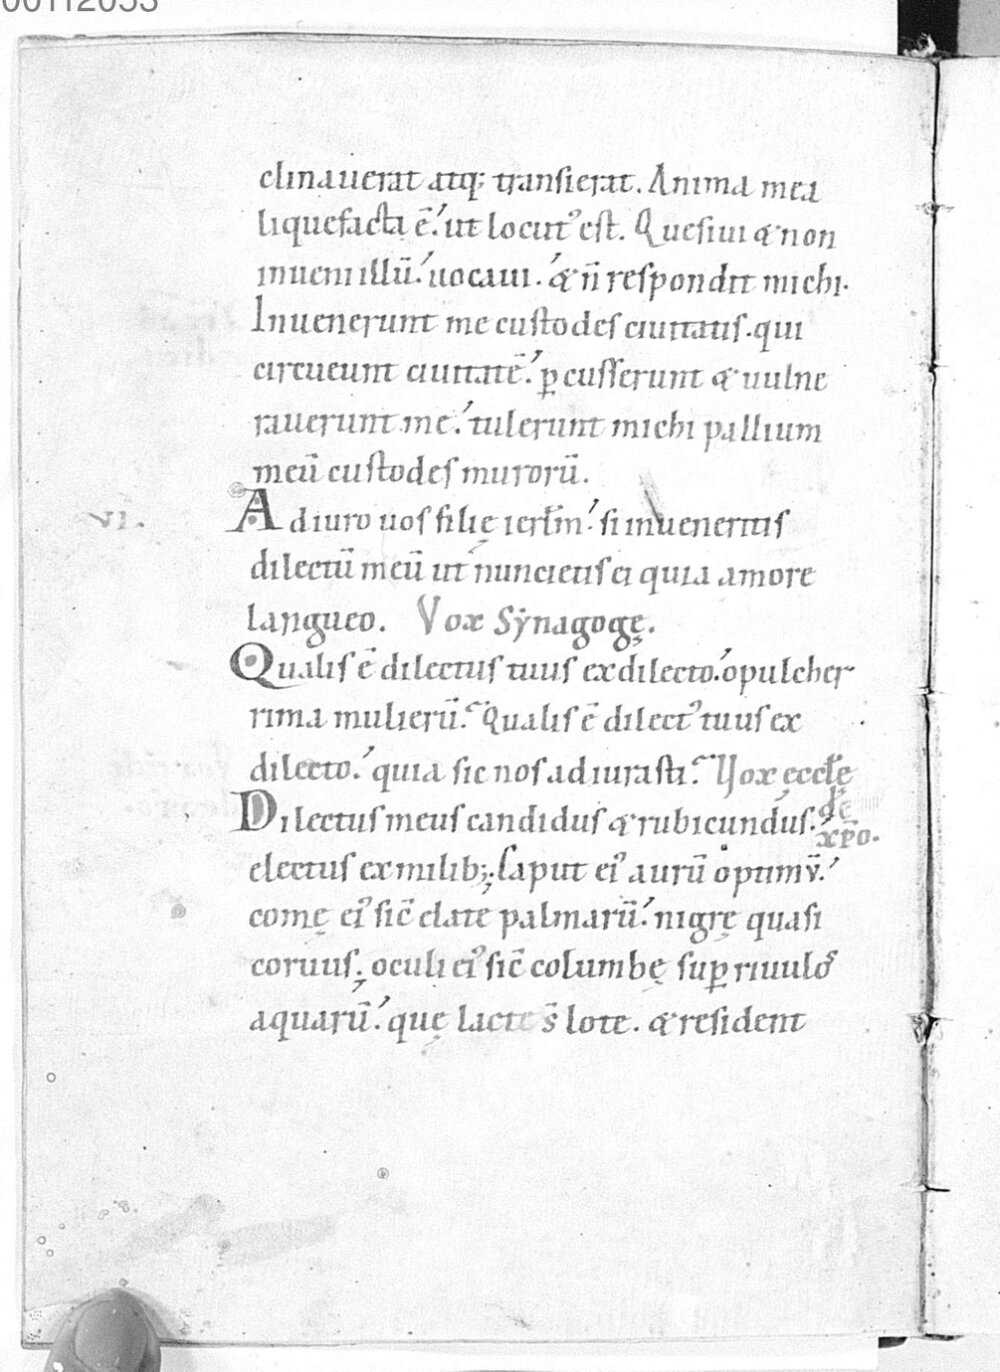 clinauerat atq; transierat. Anima mea
liquefacta ē. ut locut᾽ est. Quesiui & non
inueni illū. uocaui. & n̄ respondit michi.
Inuenerunt me custodes ciuitatis. qui
circueunt ciuitatē. ꝑcusserunt & uulne
rauerunt me. tulerunt michi pallium
meū custodes murorū.
VI. Adiuro uos filię ierl̄m. si inueneritis
dilectū meū ut nuncietis ei quia amore
langueo. Vox Synagogę.
Qualis ē dilectus tuus ex dilecto. o pulcher
rima mulierū. Qualis ē dilect᾽ tuus ex
dilecto. quia sic nos adiurasti. Vox ęccłe
de
Dilectus meus candidus & rubicundus.
xp̄o.
electus ex milib;. Caput ei᾽ aurū optimū.
comę ei᾽ sic̄ elate palmarū. nigrę quasi
coruus. oculi ei᾽ sic̄ columbę suꝑ riuulos
aquarū. quę lacte s̄ lote. & resident